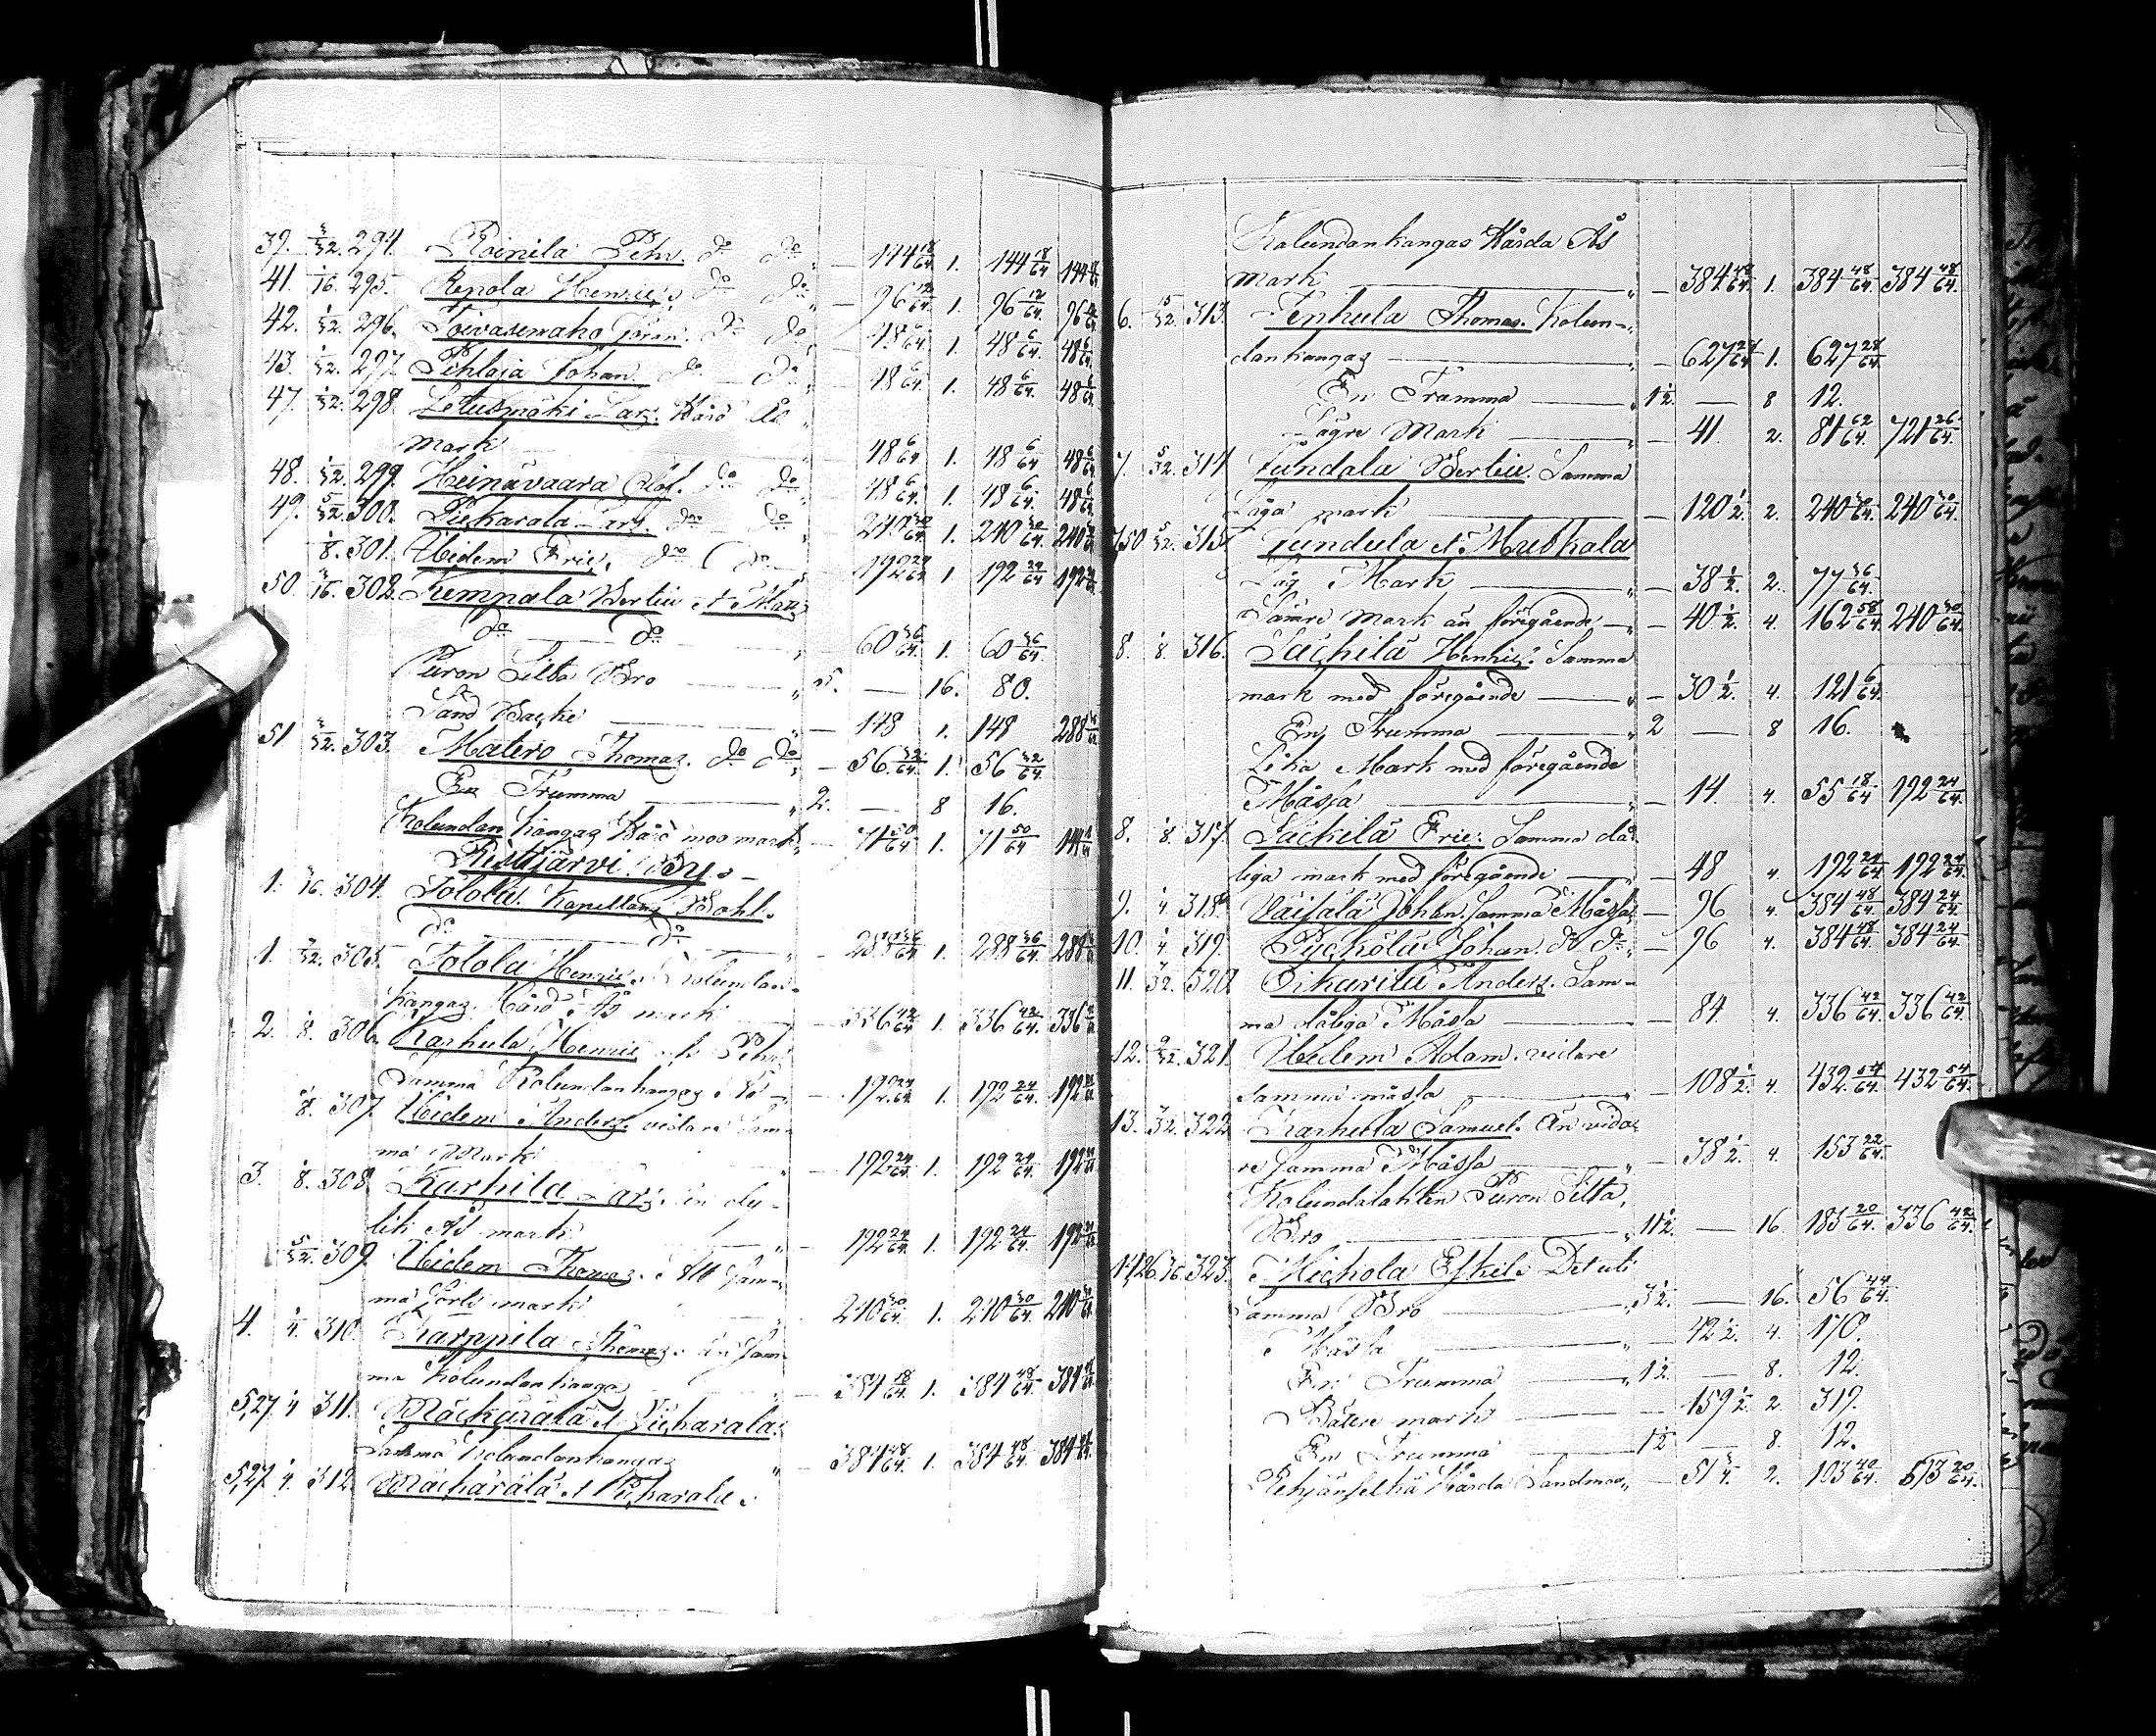 39. 3/32. 294. Roinila Pehr. do do " — 144 18/64 1. 144 18/64 144 18/64
41. 1/16. 295. Repola Henric. do do " — 96 12/64 1. 96 12/64 96 12/64
42. 1/32. 296. Toivasenaho Göran. do do " — 48 6/64 1. 48 6/64 48 6/64
43. 1/32. 297. Pihlaja Johan. do — do " — 48 6/64 1. 48 6/64 48 6/64
47. 1/32. 298. Letusmäki Lars. Hård Ås
mark — 48 6/64 1. 48 6/64 48 6/64
48. 1/32. 299. Heinävaara Olof. do do " — 48 6/64 1. 48 6/64 48 6/64
49. 5/32. 300. Pickarala Lars. do — do " — 240 30/64 1. 240 30/64 240 30/64
1/8. 301. Ibidem Eric. do do — 192 24/64 1. 192 24/64 192 24/64
50. 3/16. 302. Kempala Bertil et Matz
do — do " — 60 36/64 1. 60 36/64
Puron Silta Bro — " 5. — 16. 80.
Sand Backe — " — 148 1. 148 288
51 3/32. 303. Matero Thomas. do do " — 56 32/64 1. 56 32/64
En Trumma — " 2. — 8 16.
Kolundan Kangas Hård moo mark " — 71 50/64 1. 71 50/64 144
Ristijärvi By.
1. 3/16. 304. Tolola Kapellans Bohl.
do — do " — 288 36/64 1. 288 36/64 288
1. 7/32. 305. Tolola Henric. Kolundan-
kangas Hård Ås mark — 336 42/64 1. 336 42/64 336
2. 1/8. 306. Karhula Henric och Pehr
Samma Kolundankangas Ås — 192 24/64 1. 192 24/64 192
1/8. 307. Ibidem Anders. vidare Sam-
ma Mark " — 192 24/64 1. 192 24/64 192
3. 1/8. 308. Karhila Lars. en dy-
lik Ås mark " — 192 24/64 1. 192 24/64 192
5/32. 309. Ibidem Thomas. Allt Sam-
ma sorts mark " — 240 30/64 1. 240 30/64 240
4. 1/4. 310. Karppila Thomas. än Sam
ma Kolundankanga " — 384 48/64 1. 384 48/64 384
5,27. 1/4 311. Mäckäräla et Pickarala.
Samma Kolundankangas " — 384 48/64 1. 384 48/64 384
5,27. 1/4. 312. Mäckäräla et Pickarala.
Kolundankangas Hårda Ås
mark — " — 384 48/64. 1. 384 48/64 384 48/64.
6. 15/32. 313. Tenhula Thomas. Kolun-
dankangas — 627 28/64 1. 627 28/64.
En Trumma — " 1 1/2. — 8 12.
Lägre Mark — " — 41. 2. 81 62/64. 721 26/64.
7. 5/32. 314. Jundala Bertil. Samma
Låga mark — 120 1/2. 2. 240 30/64. 240 30/64.
7,50 5/32. 315. Jundula et Mustkala
Låg Mark — " — 38 1/2. 2. 77 36/64.
Sämre mark än föregående — " — 40 1/2. 4. 162 58/64. 240 30/64.
8. 1/8. 316. Säckilä Henric. Samma
mark med föregående — " — 30 1/2. 4. 121 6/64.
En Trumma — " 2 — 8 16.
Lika Mark med föregående
Måssa — " — 14. 4. 55 18/64 192 24/64.
8. 1/8. 317. Säckilä Eric. Samma då-
liga mark med föregående — — 48 4. 192 24/64 192 24/64.
9. 1/4 318. Väisälä Johan. Samma Måssa — 96 4. 384 48/64. 384 24/64.
10. 1/4 319. Pyckölä Johan. do do " — 96 4. 384 48/64. 384 24/64.
11. 7/32. 320. Oikarila Anders. Sam-
ma dåliga Måssa — — 84 4. 336 42/64. 336 42/64.
12. 9/32. 321. Ibidem Adam. vidare
Samma måssa — — 108 1/2. 4. 432 54/64. 432 54/64.
13. 7/32. 322. Karhula Samuel. Än vida-
re Samma Måssa — " — 38 1/2. 4. 153 22/64.
Kolundalahten Puron Silta,
Bro — 11 1/2. — 16 183 20/64. 336 42/64.
323. Michola Eskil. Det ut
Samma Bro — 3 1/2. — 16. 56 44/64.
Måssa — " — 42 1/2. 4. 170.
En Trumma — " 1 1/2. — 8. 12.
Bätere mark — — 159 1/2. 2. 319.
En Trumma — 1 1/2 — 8. 12.
Hårda Sandmoo " — 51 3/4. 2. 103 40/64. 673 20/64.